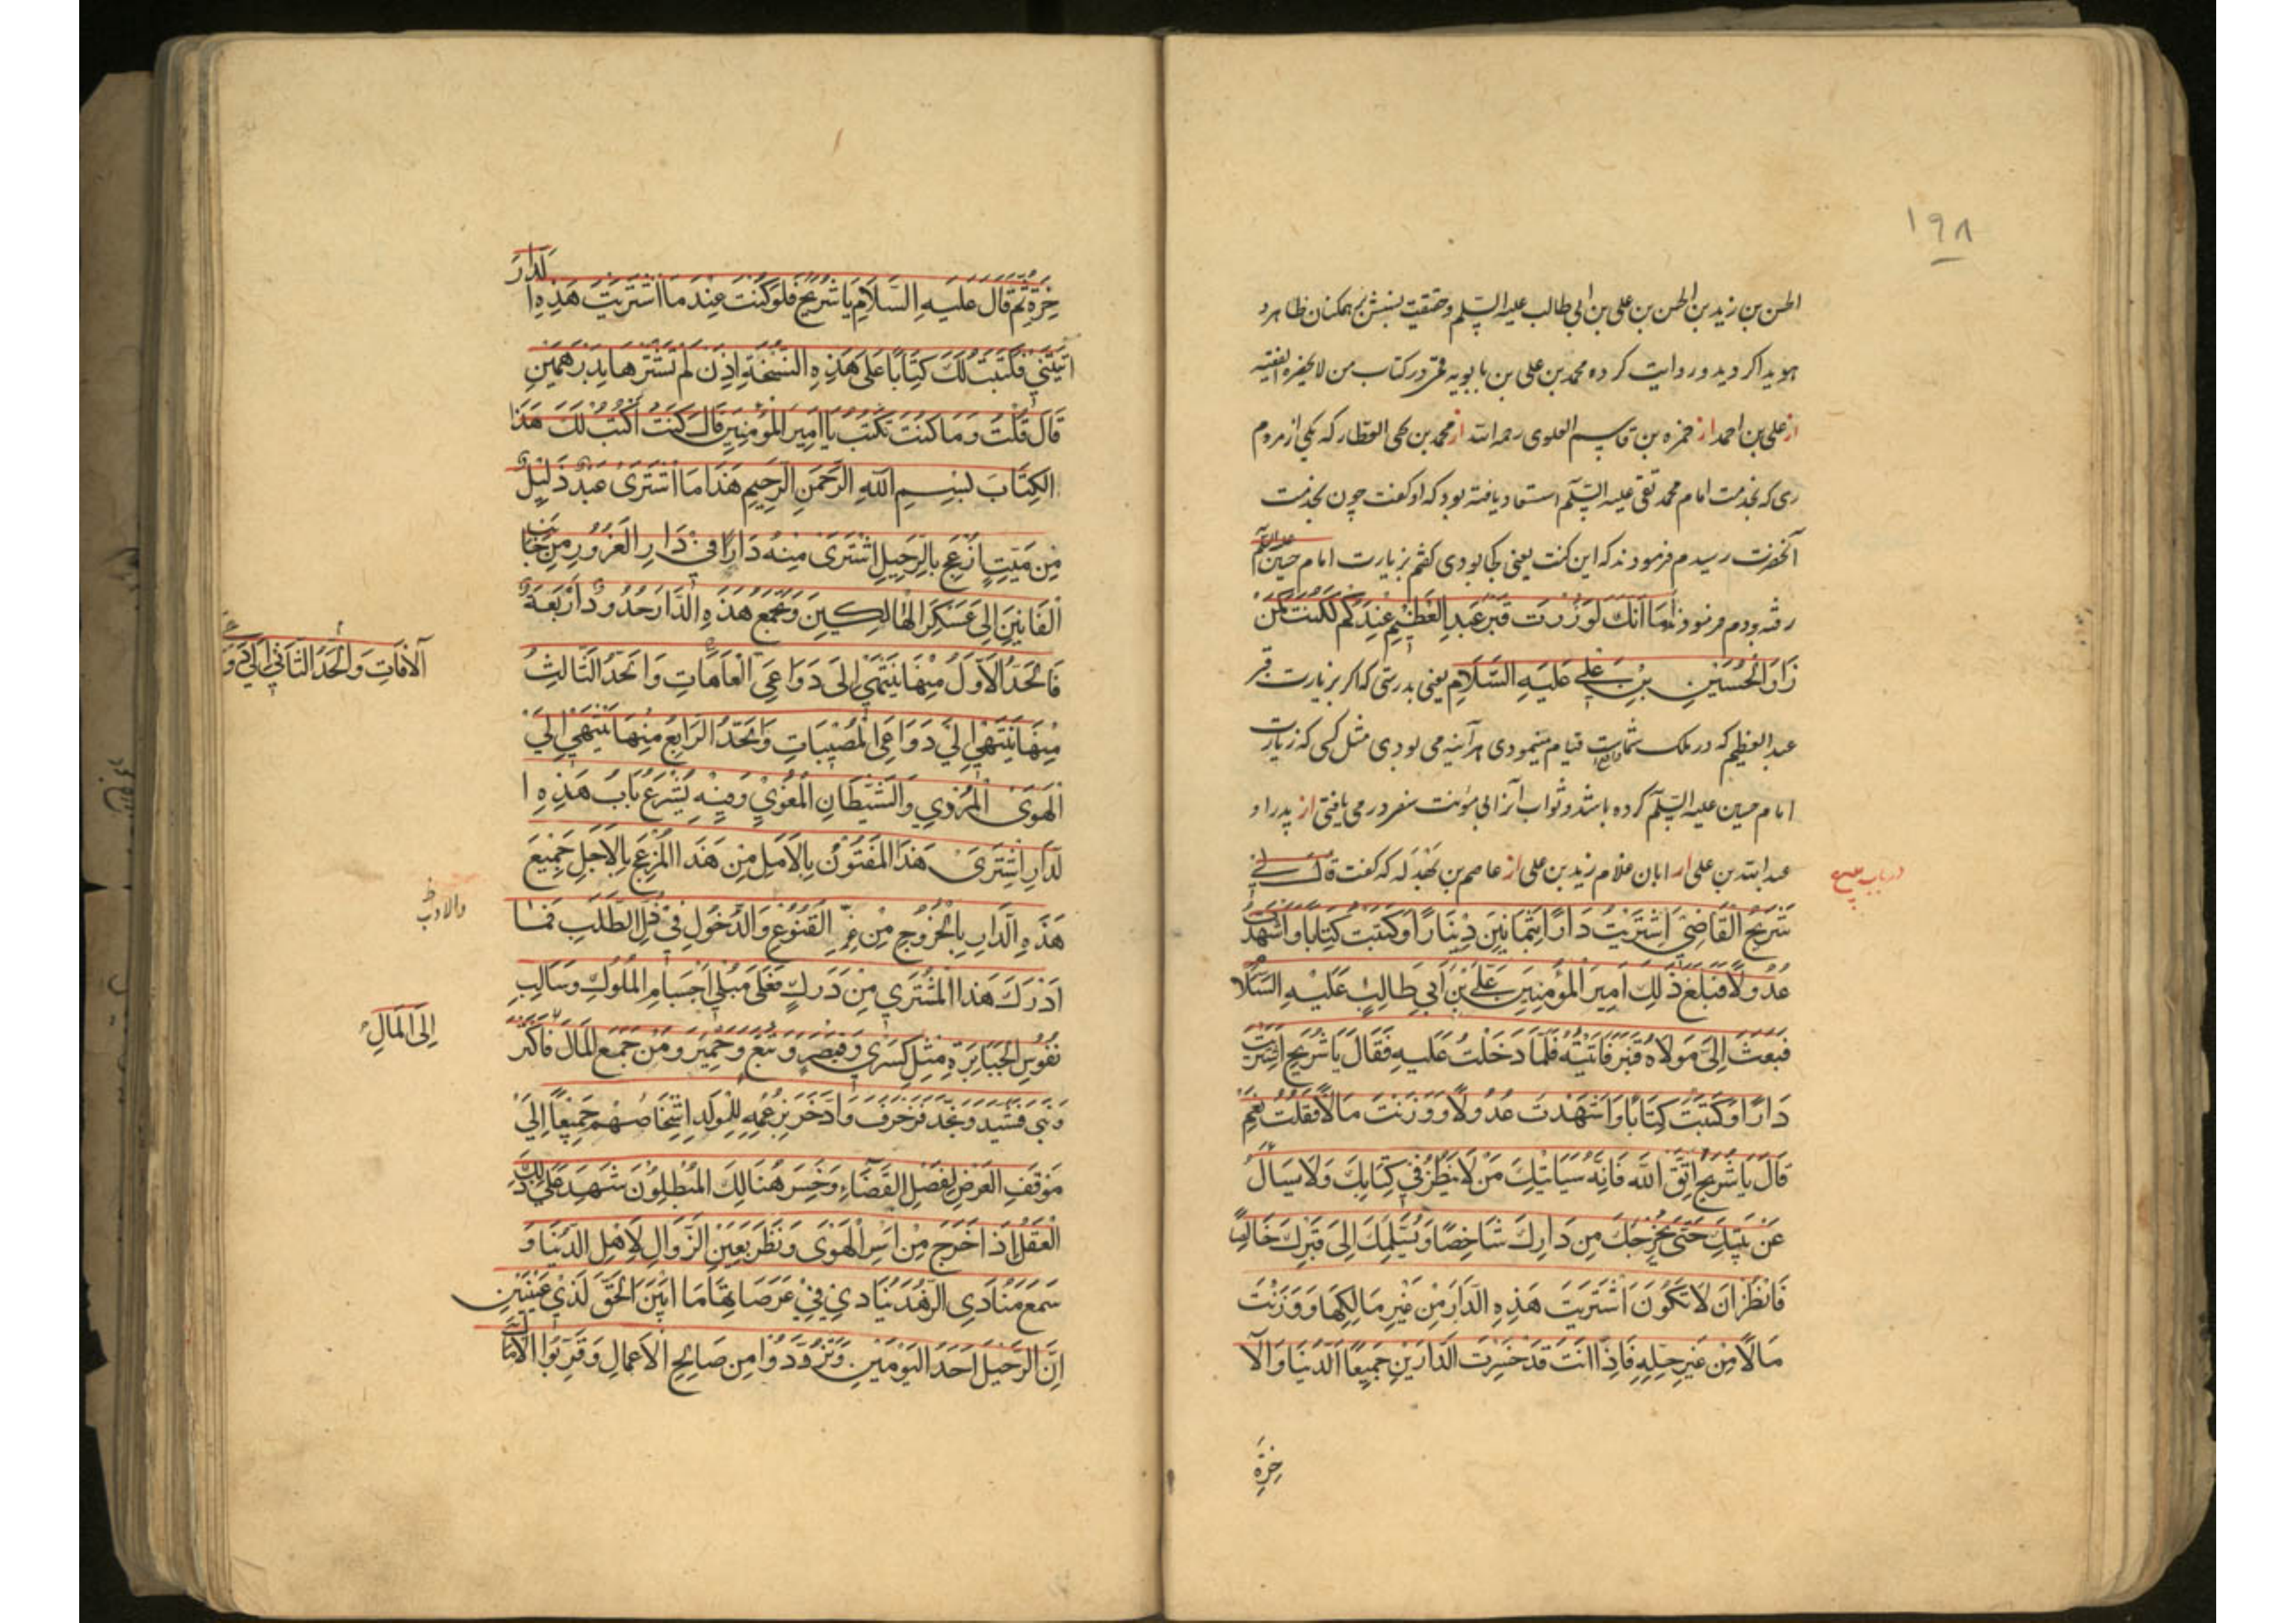 ۱۹۸
الحسن بن زید بن الحسن بن علی بن ابی طالب علیه السلم وحقیقت نسبش بر همکنان ظاهر و
هویدا کردید و روایت کرده محمد بن علی بن بابویه قمی در کتاب من لایحضره الفقیه
از علی بن احمد از حمزه بن قاسم العلوی رحمه الله از محمد بن یحیی العطار که یکی از مردم
ری که بخدمت امام محمد تقی علیه السلم استسعاد یافته بود که او کفت چون بخدمت
آنحضرت رسیدم فرمودند که این کنت یعنی کجا بودی کفتم بزیارت امام حسین علیه السلم
رفته بودم فرمودند اَمَا اَنَّكَ لَوْ زُرْتَ قَبْرَ عَبْدِ الْعَظِيْمِ عِنْدَكُمْ لَكُنْتَ كَمَنْ
زَارَ الْحُسَيْنِ بْنِ عَلِي عَلَيْهِ السَّلَامِ یعنی بدرستی که اکر بزیارت قبر
عبد العظیم که در ملک شماست واقع قیام مینمودی هر آینه می بودی مثل کسی که زیارت
امام حسین علیه السلم کرده باشد و ثواب آنرا بی مؤنت سفر در می یافتی از پدر او
عبد الله بن علی از ابان غلام زید بن علی از عاصم بن بَهْدَلَه که کفت قَالَ لِي
در باب بیع
شُرَيْحُ الْقَاضِي اِشْتَرَيْتُ دَارًا بِثَمَانِيْنَ دِيْنَارًا وَكَتَبْتُ كِتَابًا وَاَشْهَدْتُ
عُدُوْلًا فَبَلَغَ ذَلِكَ اَمِيْرَ الْمُؤْمِنِيْنَ عَلَيِ بْنَ اَبِي طَالِبٍ عَلَيْهِ السَّلَا
فَبَعَثَ اِلَيَّ مَوْلَاهُ قَنْبَرَ فَاَتَيْتُهُ فَلَمَّا دَخَلْتُ عَلَيْهِ فَقَالَ يَا شُرَيْحُ اِشْتَرَيْتَ
دَارًا وَكَتَبْتَ كِتَابًا وَاَشْهَدْتَ عُدُوْلًا وَوَزَنْتَ مَالًا فَقُلْتُ نَعَمْ
قَالَ يَا شُرَيْحُ اِتَّقِ اللَّهَ فَاِنَّهُ سَيَاْتِيْكَ مَنْ لَا يَنْظُرُ فِي كِتَابِكَ وَلَا يَسْاَلُ
عَنْ بَيِّنَتِكَ حَتَّى يُخْرِجَكَ مِنْ دَارِكَ شَاخِصًا وَيُسَلِّمَكَ اِلَى قَبْرِكَ خَالِصًا
فَانْظُرْ اَنْ لَا تَكُوْنَ اَشْتَرَيْتَ هَذِهِ الدَّارَ مِنْ غَيْرِ مَالِكِهَا وَوَزَنْتَ
مَالًا مِنْ غَيْرِ حِلِّهِ فَاِذًا اَنْتَ قَدْ خَسِرْتَ الدَّارَيْنِ جَمِيْعًا اَلدُّنْيَا وَالْآ
خِرَةَ
خِرَةِ ثُمَّ قَالَ عَلَيْهِ السَّلَامِ يَا شُرَيْحُ فَلَوْ كُنْتَ عِنْدَ مَا اشْتَرَيْتَ هَذِهِ ا
لَدَّارَ
اَتَيْتَنِي فَكَتَبْتُ لَكَ كِتَابًا عَلَى هَذِهِ النُّسْخَةِ اِذَنْ لَمْ تَشْتَرِهَا بِدِرْهَمَيْنِ
قَالَ قُلْتُ وَمَا كُنْتَ تَكْتُبُ يَا اَمِيْرَ الْمُؤْمِنِيْنَ قَالَ كُنْتُ اَكْتُبُ لَكَ هَذَا
الْكِتَابَ بِسْمِ اللَّهِ الرَّحْمَنِ الرَّحِيْمِ هَذَا مَا اشْتَرَى عَبْدٌ ذَلِيْلٌ
مِنْ مَيِّتٍ اُزْعِجَ بِالرَّحِيْلِ اِشْتَرَى مِنْهُ دَارًا فِي دَارِ الْغُرُوْرِ مِنْ جَانِبِ
الْفَانِيْنَ اِلَى عَسْكَرِ الْهَالِكِيْنَ وَتَجْمَعُ هَذِهِ الدَّارَ حُدُوْدٌ اَرْبَعَةٌ
فَالْحَدُّ الْاَوَّلُ مِنْهَا يَنْتَهِي اِلَى دَوَاعِي الْعَاهَاتِ وَالْحَدُّ الثَّالِثُ
الْآفَاتِ وَالْحَدُّ الثَّانِي اِلَى دَوَ
مِنْهَا يَنْتَهِي اِلَى دَوَاعِي الْمُصِيْبَاتِ وَالْحَدُّ الرَّابِعُ مِنْهَا يَنْتَهِي اِلَيْ
الْهَوَى الْمُرْدِي وَالشَّيْطَانِ الْمُغْوِي وَمِنْهُ يُشْرَعُ بَابُ هَذِهِ ا
لدَّارِ اِشْتَرَى هَذَا الْمَفْتُوْنُ بِالْاَمَلِ مِنْ هَذَا الْمُزْعَجِ بِالْاَجَلِ جَمِيْعَ
هَذِهِ الدَّارِ بِالْخُرُوْجِ مِنْ عِزِّ الْقُنُوْعِ وَالدُّخُوْلِ فِي ذُلِّ الطَّلَبِ فَمَا
اَدْرَكَ هَذَا الْمُشْتَرِي مِنْ دَرَكٍ فَعَلَى مُبْلِي اَجْسَامِ الْمُلُوْكِ وَسَالِبِ
نُفُوْسِ الْجَبَابِرَةِ مِثْلِ كِسْرَى وَقَيْصَرَ وَتُبَّعَ وَحِمْيَرَ وَمَنْ جَمَعَ الْمَالَ فَاَكْثَرَ
اِلَى الْمَالِ
وَبَنَى فَشَيَّدَ وَنَجَّدَ فَزَخْرَفَ وَادَّخَرَ بِزَعْمِهِ لِلْوَلَدِ اِشْخَاصُهُمْ جَمِيْعًا اِلَيْ
مَوْقِفِ الْعَرْضِ لِفَصْلِ الْقَضَاءِ وَخَسِرَ هُنَالِكَ الْمُبْطِلُوْنَ شَهِدَ عَلَي ذَلِكَ
الْعَقْلُ اِذَا خَرَجَ مِنْ اَسْرِ الْهَوَى وَنَظَرَ بِعَيْنِ الزَّوَالِ لِاَهْلِ الدُّنْيَا وَ
سَمِعَ مُنَادِي الزُّهْدِ يُنَادِي فِي عَرَصَاتِهَا مَا اَبْيَنَ الْحَقَّ لِذِي عَيْنَيْنِ
اِنَّ الرَّحِيْلَ اَحَدُ الْيَوْمَيْنِ وَتَزَوَّدُوْا مِنْ صَالِحِ الْاَعْمَالِ وَقَرِّبُوا الْآمَالَ